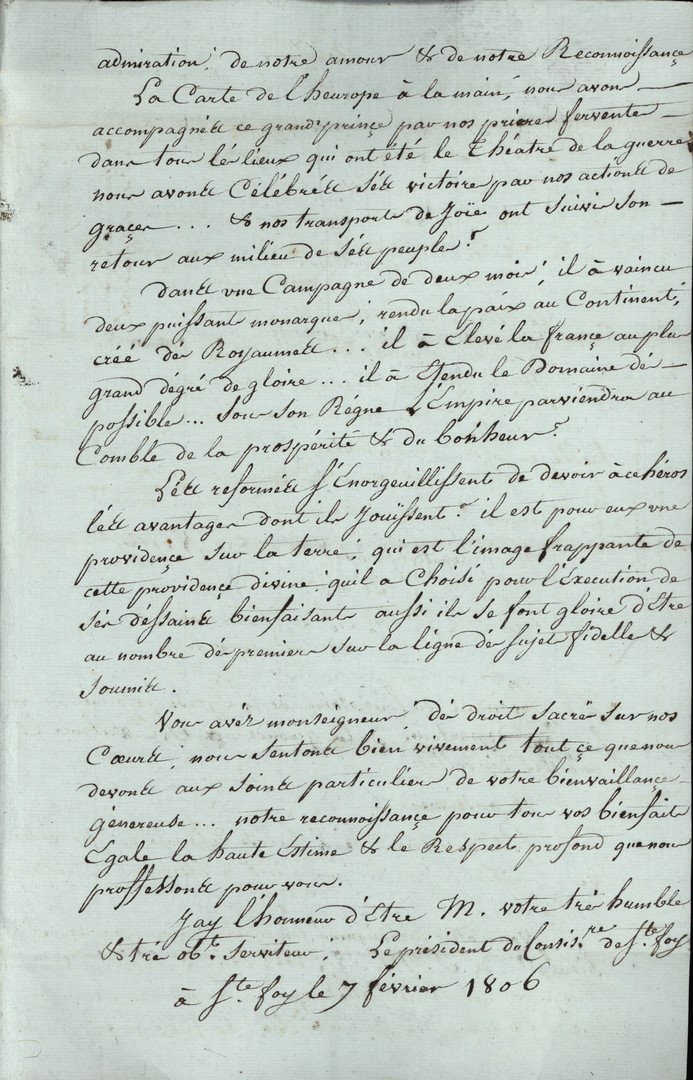 admiration; de notre amour & de notre Reconnoissançe
La Carte de l'heurope à la main, nous avons —
accompagnés ce grand prinçe par nos prieres ferventes —
dans tous lés lieux qui ont été le théatre de la guerre
nous avons Célébrés sés victoires par nos actions de
graçes... & nos transports de Joïe ont suivis son —
retour aux milieu de sés peuples.
dans une Campagne de deux mois; il à vaincu
deux puissants monarques; rendu la paix au Continent;
créé dés Royaumes... il à Elevé la françe au plus
grand dégré de gloire... il à Etendu le Domaine dés —
possibles... sous son Régne l'Empire parviendra au
Comble de la prospérité & du bonheur.
Lés reformés s'Enorgeuillissent de devoir à ce héros
lés avantages dont ils Jouïssent. il est pour eux une
providençe sur la terre; qui est l'image frappante de
cette providençe divine qu'il a Choisi pour l'Execution de
sés déssains bienfaisants aussi ils se font gloire d'Etre
au nombre dés premiers sur la ligne dés sujets fidelles &
soumis.
Vous avéz monseigneur dés droits sacrés sur nos
Cœurs; nous sentons bien vivement tout çe que nous
devons aux soins particuliers de votre bienvaillançe
généreuse... notre reconnoissançe pour tous vos bienfaits
Egale la haute Estime & le Respect profond que nous
proffessons pour vous.
Jay l'honneur d'Etre M. votre trés humble
& trés obt. serviteur; Le président du Consis.re de Ste foy
à Ste foy le 7 février 1806